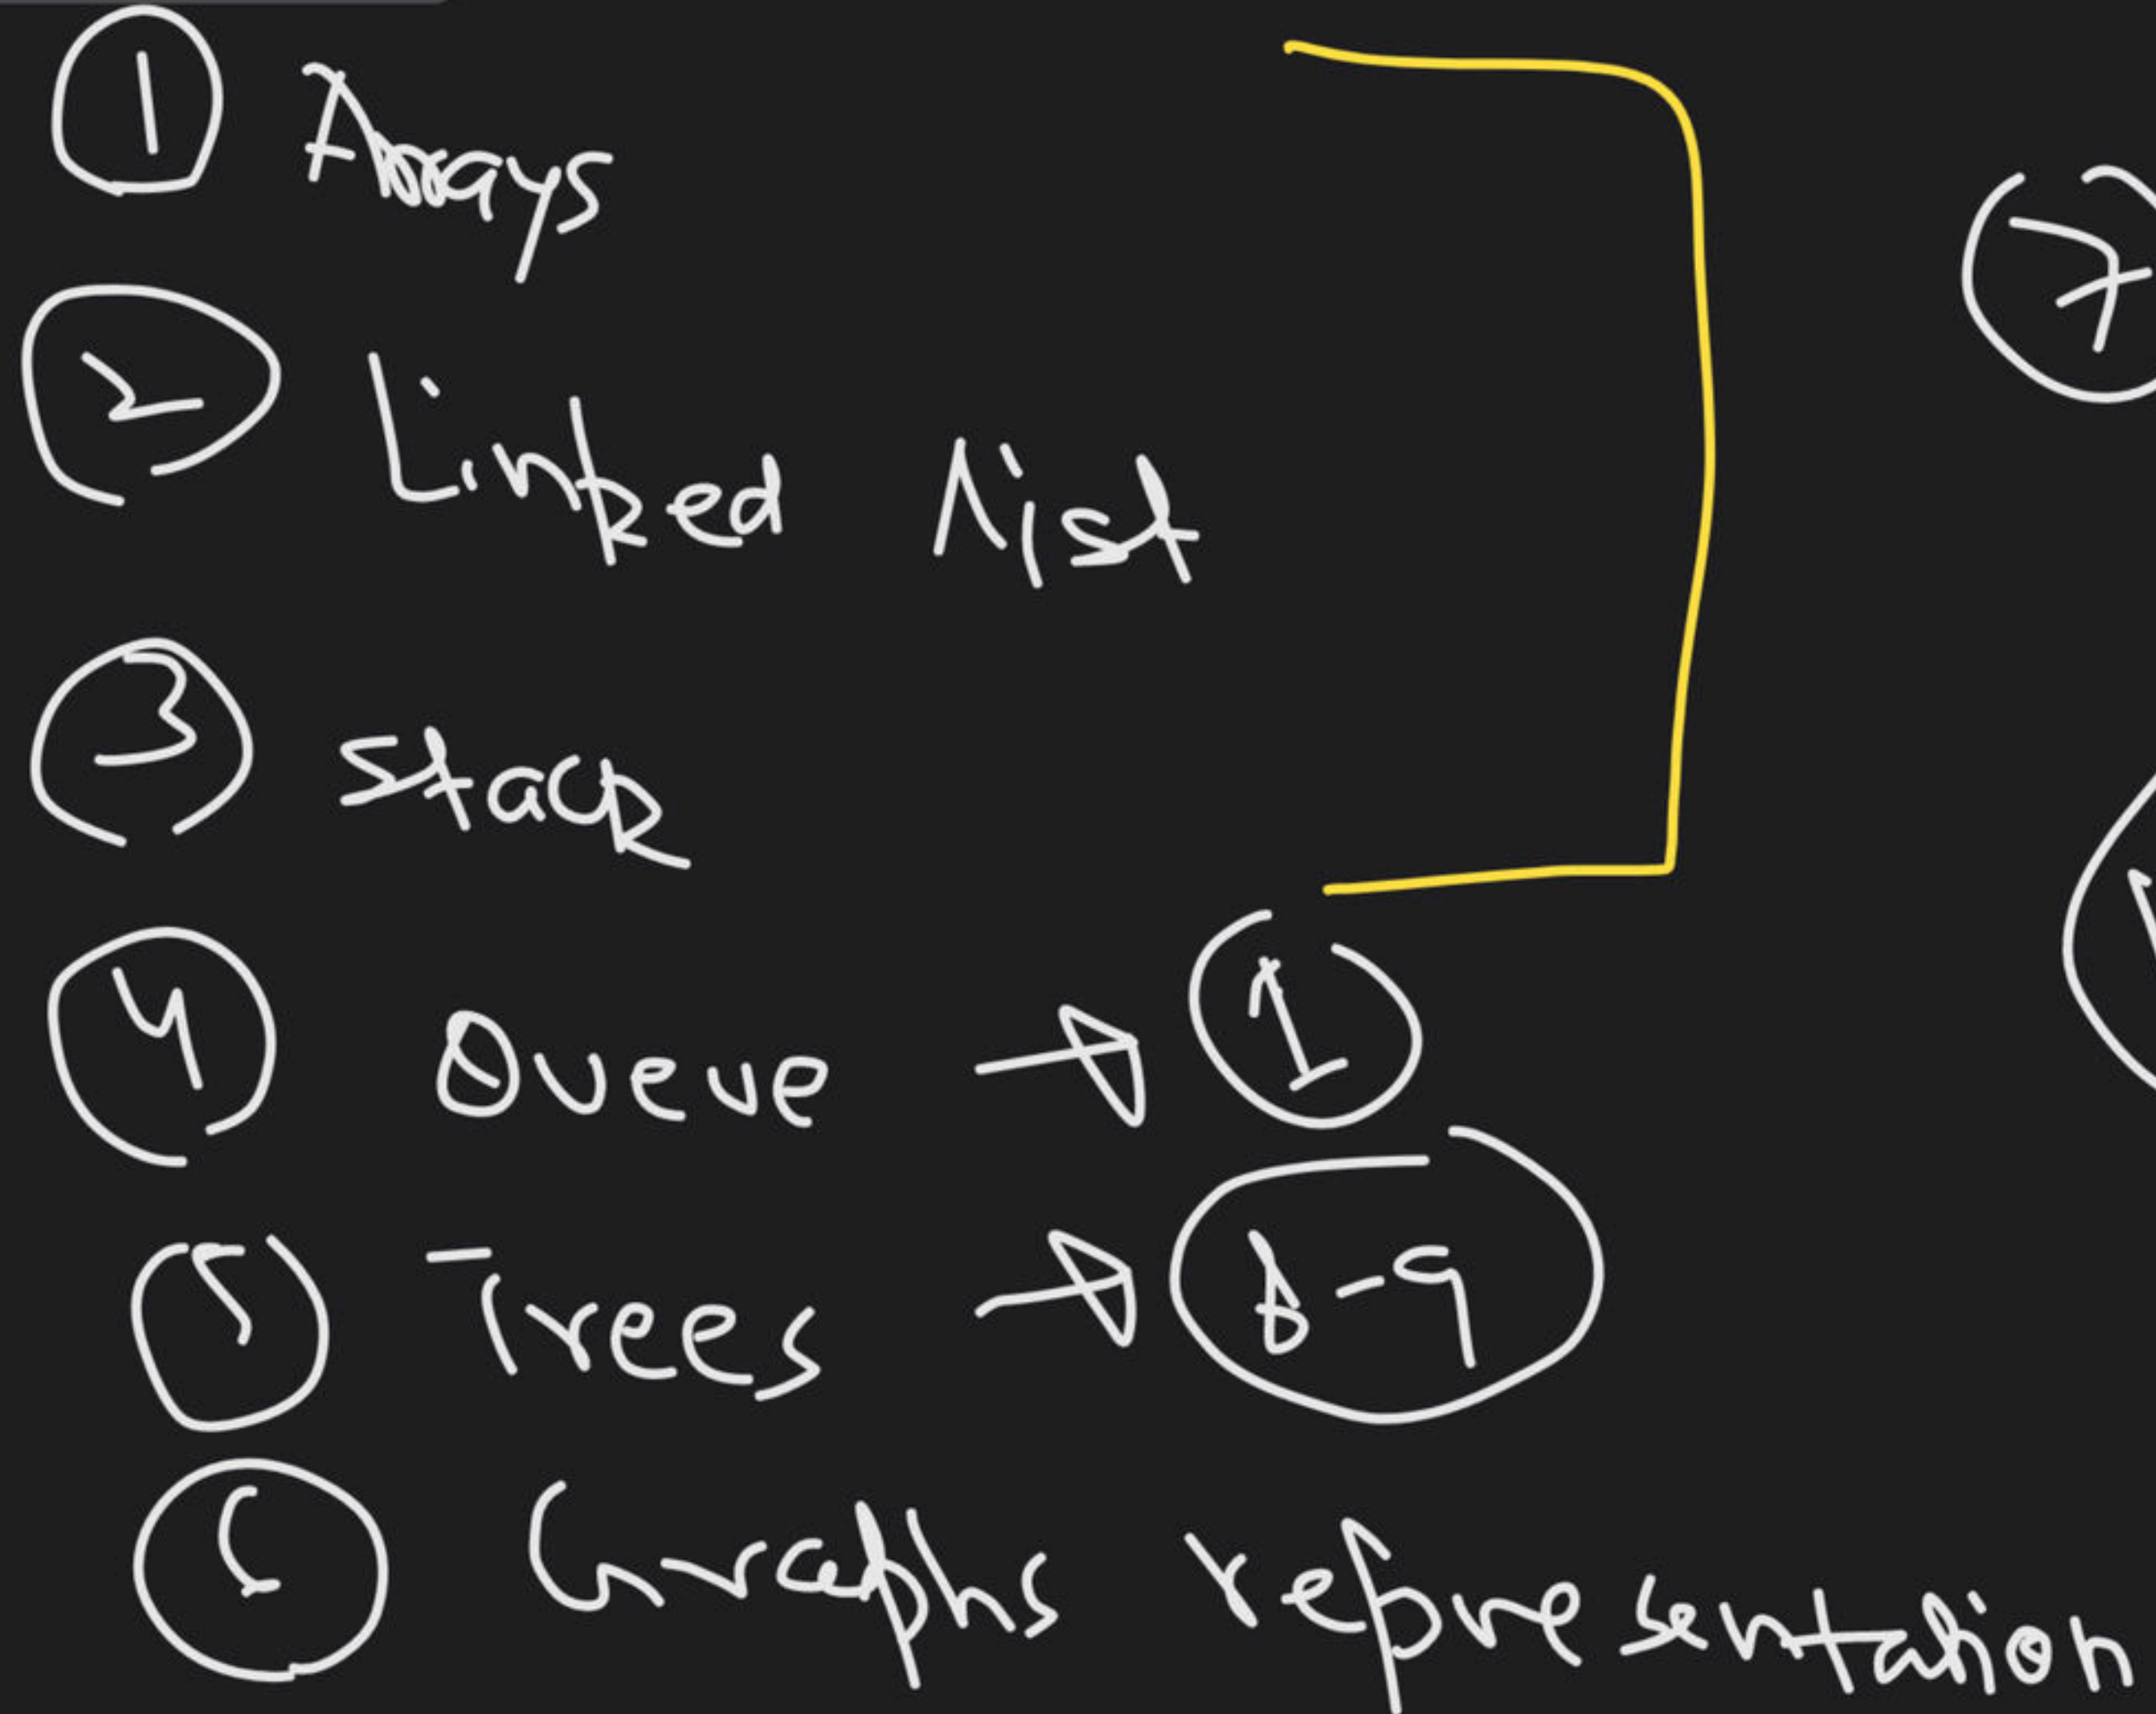 1 Arrays
2 Linked list
3 stack
4 Queue → 1
5 Trees → 8-9
6 Graphs representation
7